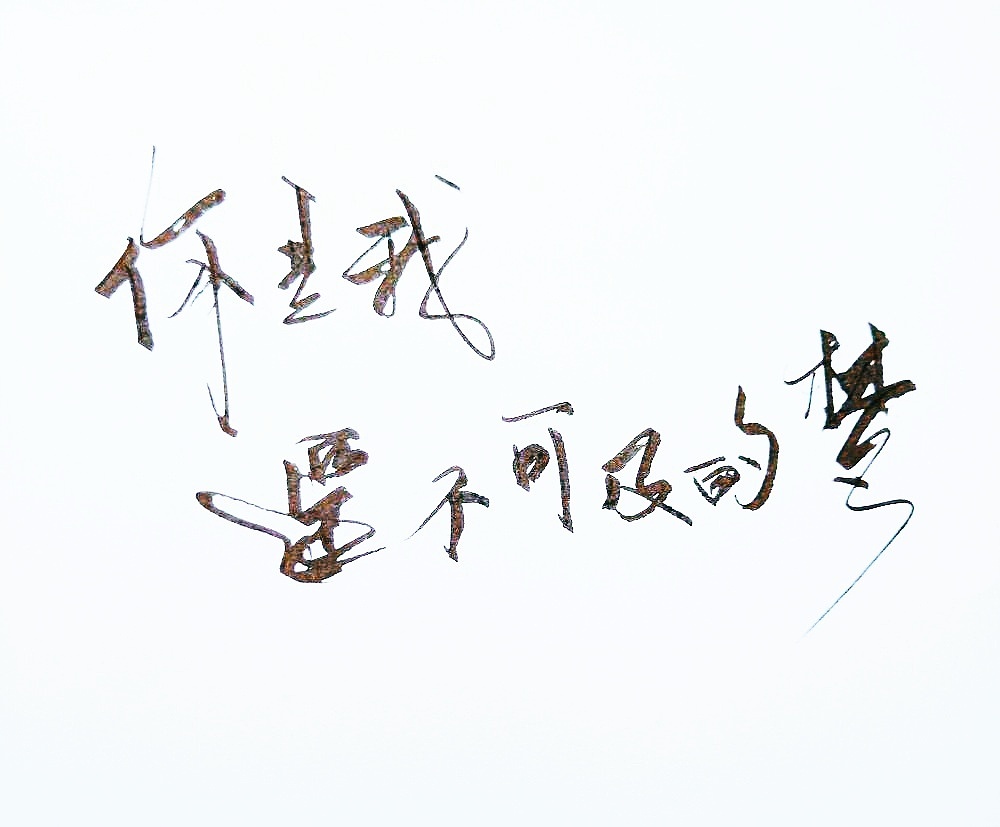 你是我
遥不可及的梦